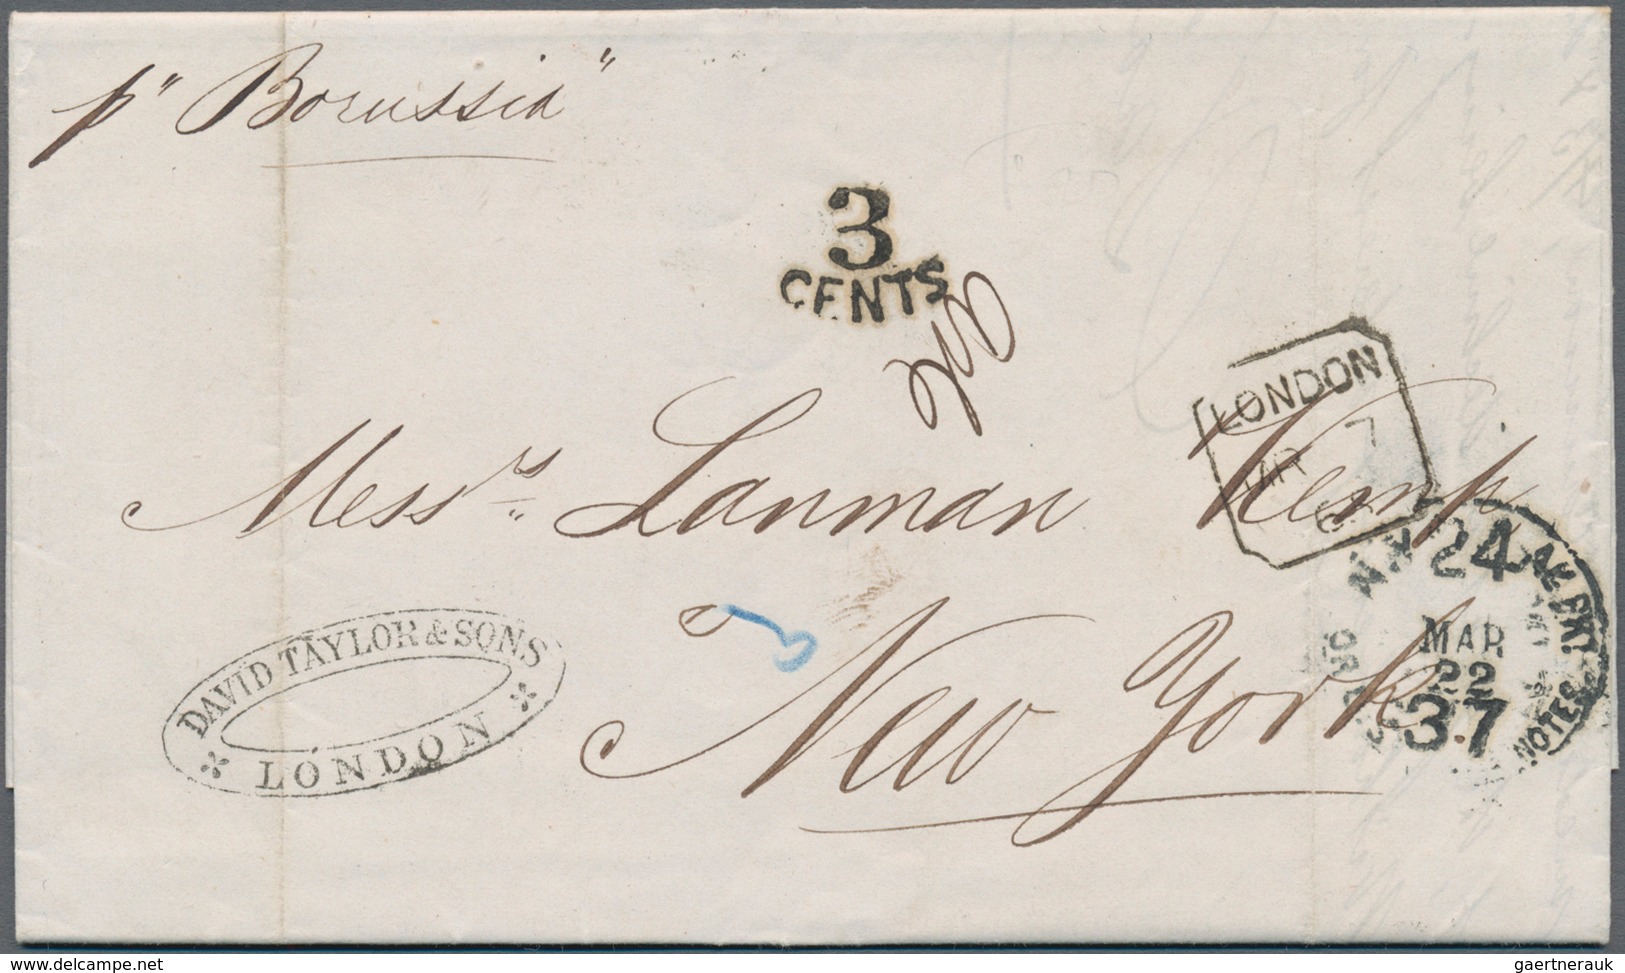 p" Borussia"
3
CENTS
LONDON
MR 7
Mess.rs Lanman Kemp,
New York
DAVID TAYLOR & SONS
LONDON
N.Y. 24 AM. PKT.
MAR
22
37
NOTES
delcampe.net
gaertnerauk